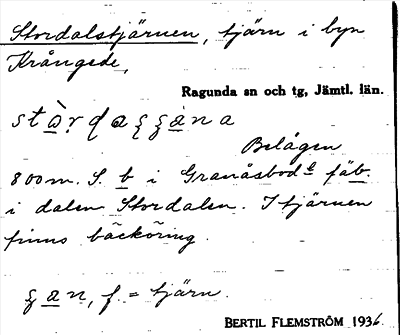 Stordalstjärnen, tjärn i byn
Krångede,
Ragunda sn och tg, Jämtl. län.
Belägen
800 m. S. b i Granåsbodᵉ fäb.
i dalen Stordalen. I tjärnen
finns bäcköring.
f. = tjärn.
BERTIL FLEMSTRÖM 1936